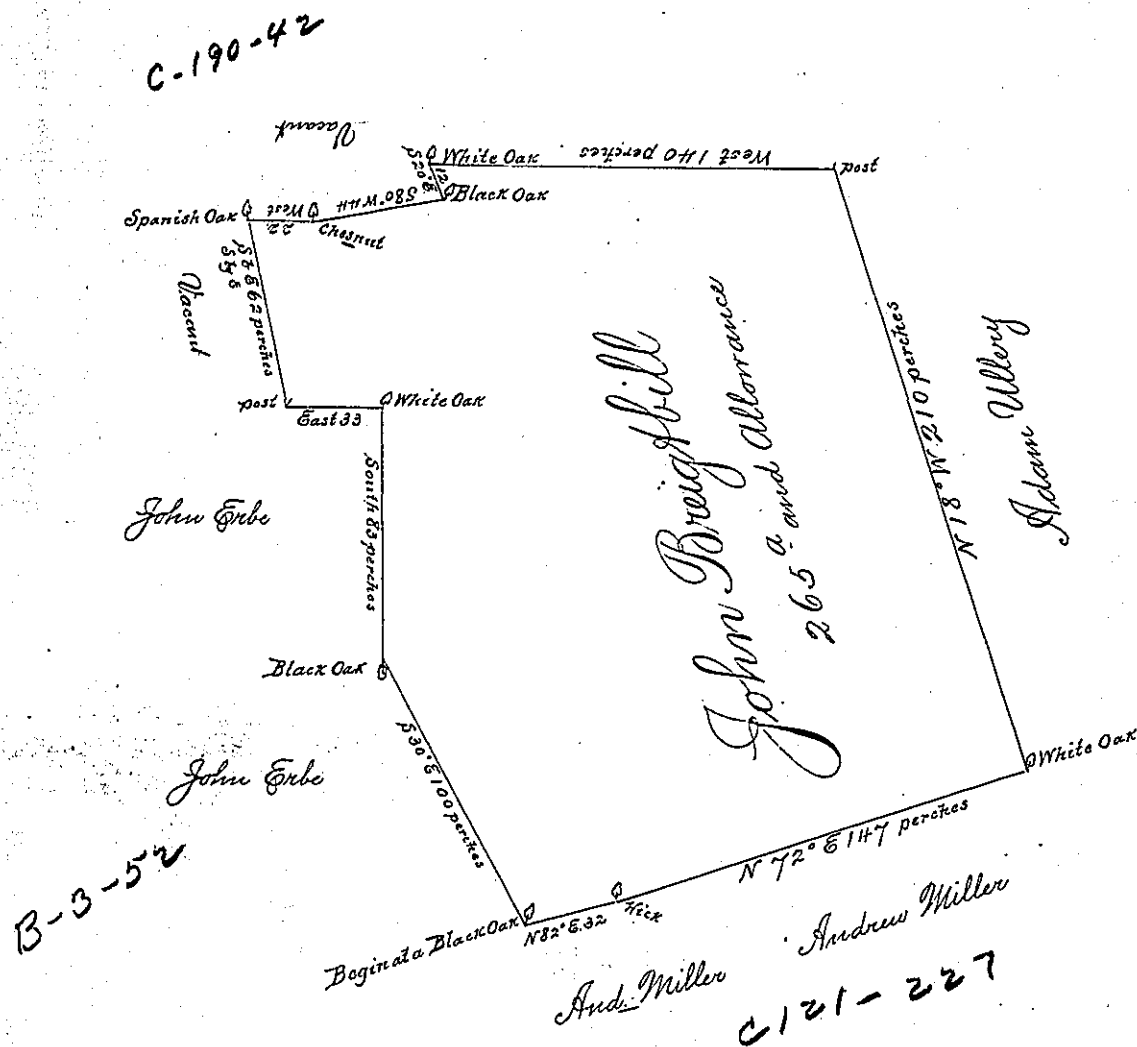 C-190-42
Vacant
White Oak
West 140 perches
post
S20°E
12
Black Oak
S80°W44
Chesnut
West
22
Spanish Oak
E 62 perches
Vacant
post
East 33
White Oak
South 83 perches
John Erbe
Black Oak
S30°E 100 perches
John Erbe
B-3-52
Begin at a Black Oak
N82°E.32
Hick
N 72° E 147 perches
White Oak
N 18° W 210 perches
Adam Ullery
John Breightbill
265 a and allowance
And. Miller
Andrew Miller
C121-227